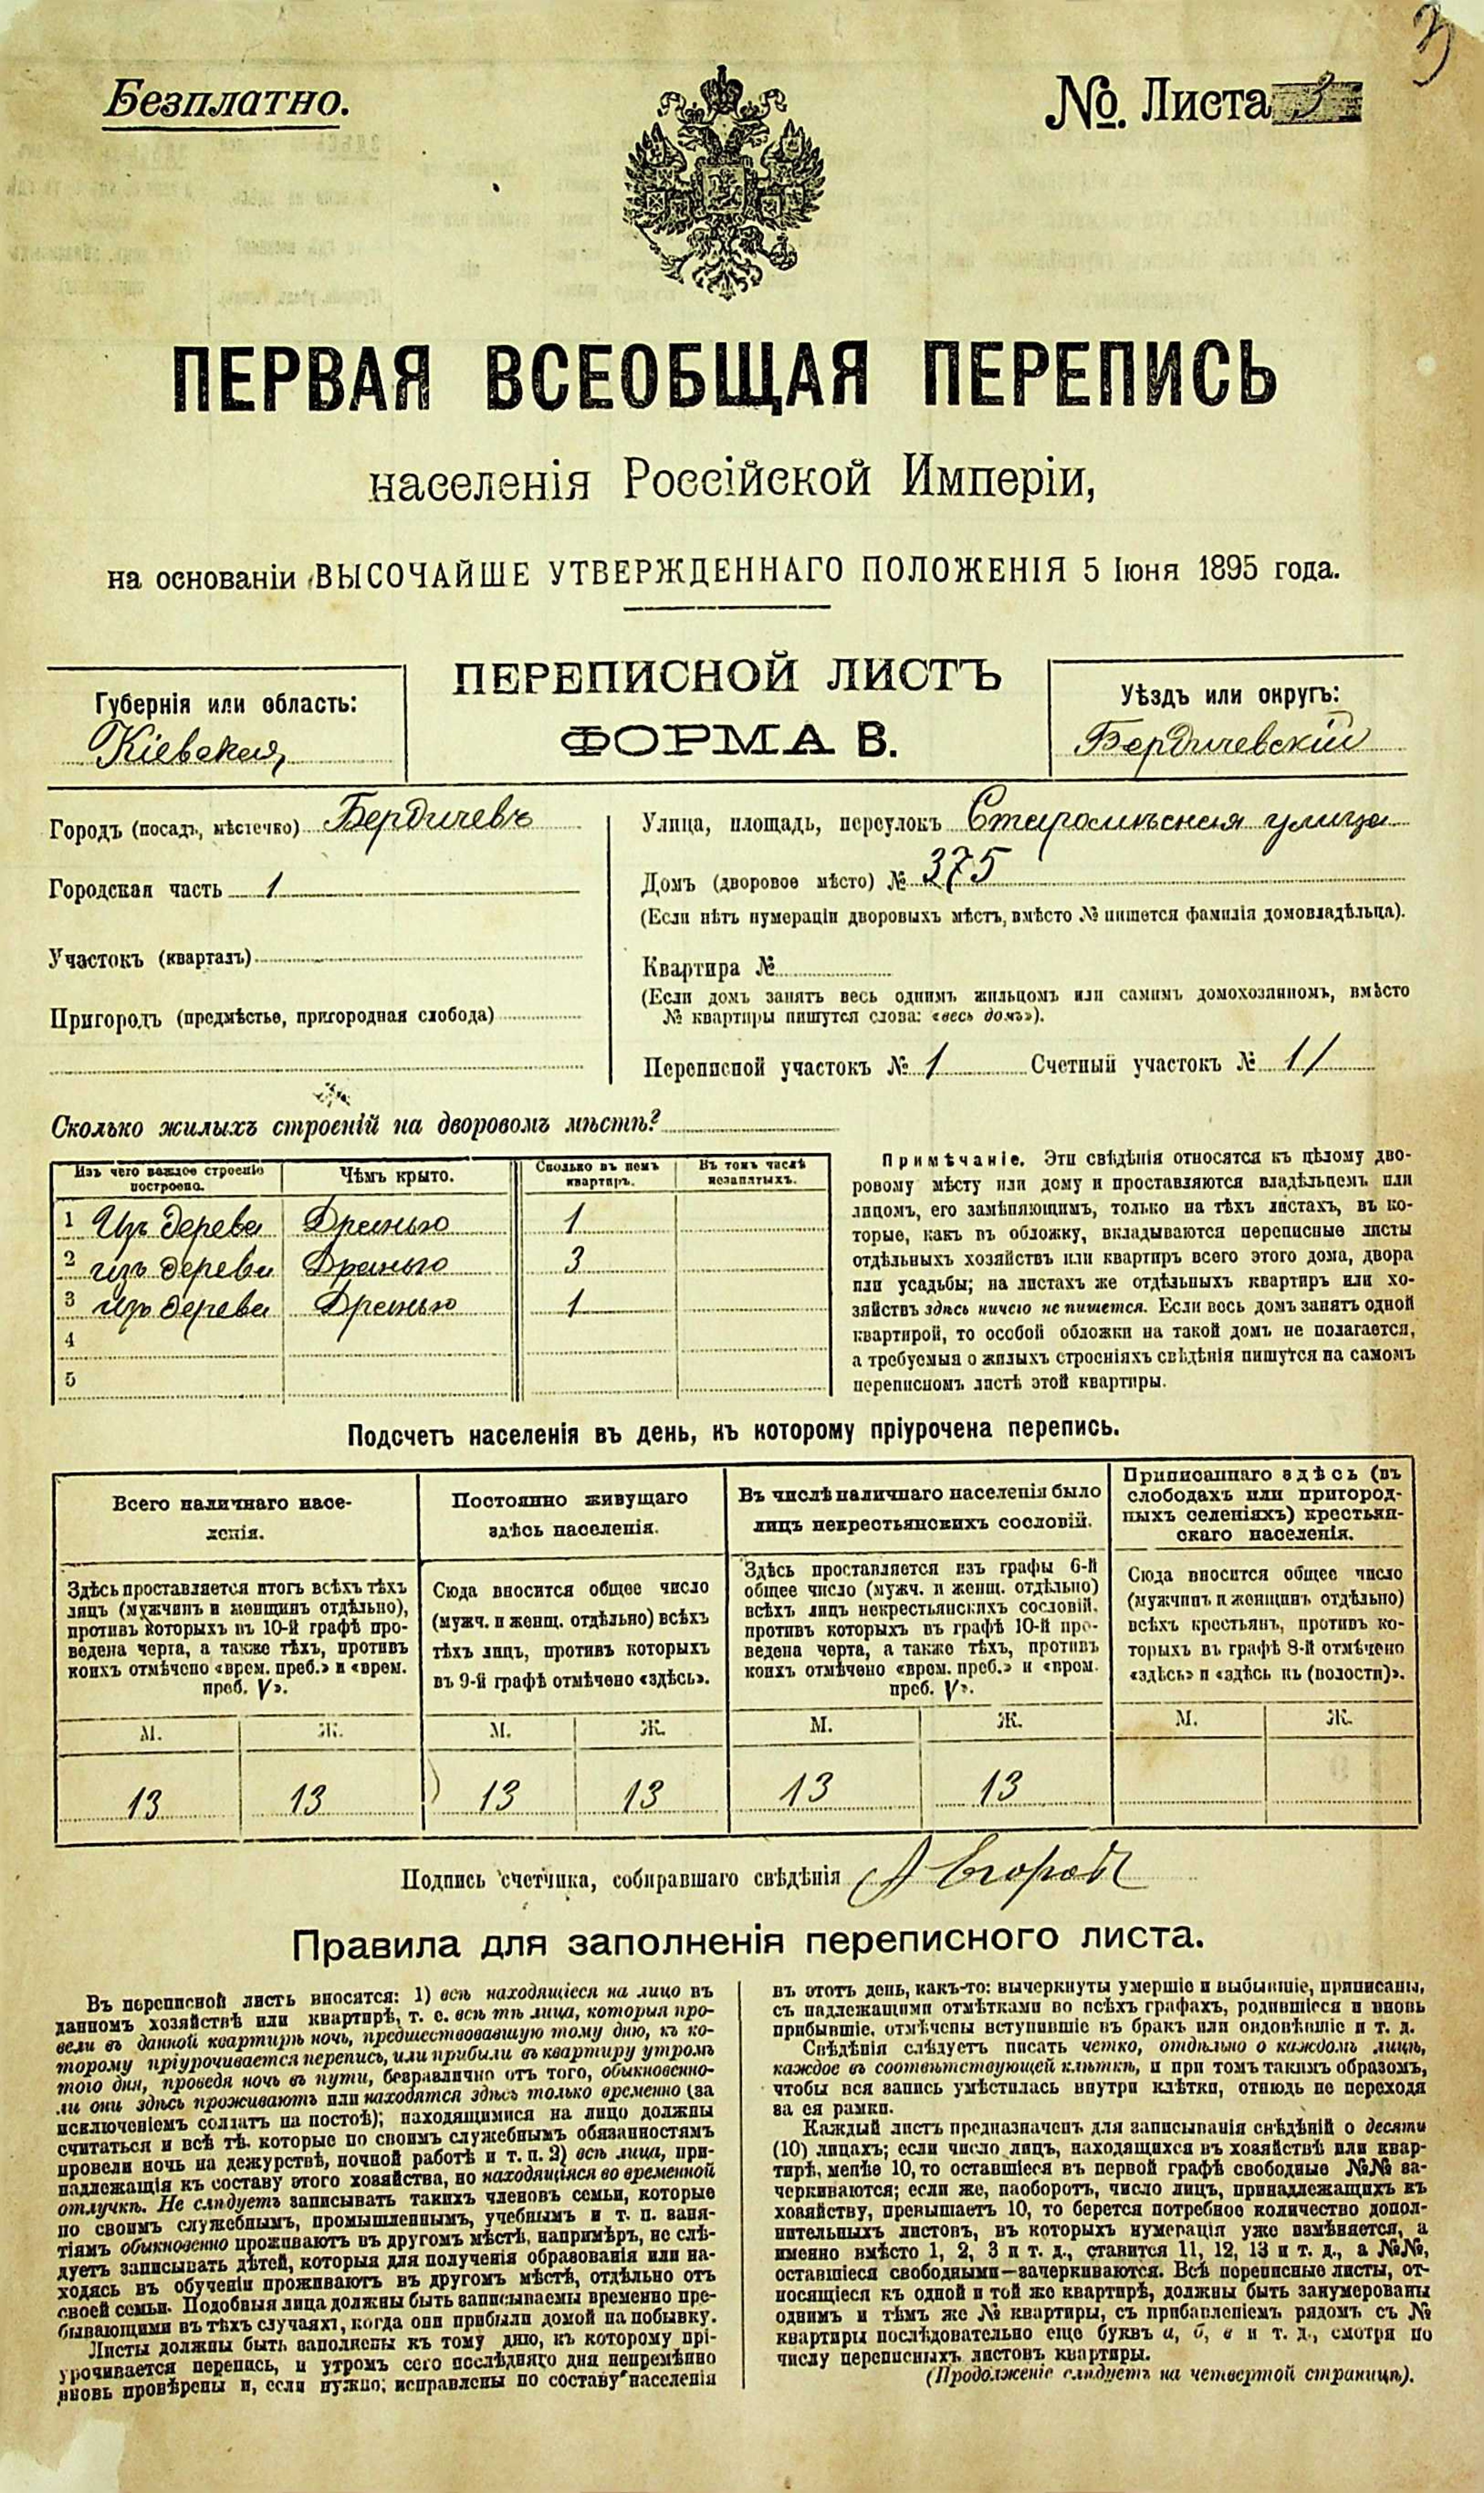 3
Безплатно.
№. Листа 3
ПЕРВАЯ ВСЕОБЩАЯ ПЕРЕПИСЬ
населенія Россійской Имперіи,
на основаніи ВЫСОЧАЙШЕ УТВЕРЖДЕННАГО ПОЛОЖЕНІЯ 5 Іюня 1895 года.
Губернія или область:
Кіевская
ПЕРЕПИСНОЙ ЛИСТЪ
ФОРМА В.
Уѣздъ или округъ:
Бердичевскій
Городъ (посадъ, мѣстечко) Бердичевъ
Городская часть 1
Участокъ (кварталъ)
Пригородъ (предмѣстье, пригородная слобода)
Улица, площадь, переулокъ улица
Домъ (дворовое мѣсто) № 375
(Если нѣтъ нумераціи дворовыхъ мѣстъ, вмѣсто № пишется фамилія домовладѣльца).
Квартира №
(Если домъ занятъ весь однимъ жильцомъ или самимъ домохозяиномъ, вмѣсто
№ квартиры пишутся слова: «весь домъ»).
Переписной участокъ № 1 Счетный участокъ № 11
Сколько жилыхъ строеній на дворовомъ мѣстѣ?
Изъ чего каждое строеніе построено.
Чѣмъ крыто.
Сколько въ немъ квартиръ.
Въ томъ числѣ незанятыхъ.
1 Изъ дерева Дранью 1
2 изъ дерева Дранью 3
3 изъ дерева Дранью 1
4
5
Примѣчаніе. Эти свѣдѣнія относятся къ цѣлому дво-
ровому мѣсту или дому и проставляются владѣльцемъ или
лицомъ, его замѣняющимъ, только на тѣхъ листахъ, въ ко-
торые, какъ въ обложку, вкладываются переписные листы
отдѣльныхъ хозяйствъ или квартиръ всего этого дома, двора
или усадьбы; на листахъ же отдѣльныхъ квартиръ или хо-
зяйствъ здѣсь ничего не пишется. Если весь домъ занятъ одной
квартирой, то особой обложки на такой домъ не полагается,
а требуемыя о жилыхъ строеніяхъ свѣдѣнія пишутся на самомъ
переписномъ листѣ этой квартиры.
Подсчетъ населенія въ день, къ которому пріурочена перепись.
Всего наличнаго насе-
ленія.
Здѣсь проставляется итогъ всѣхъ тѣхъ
лицъ (мужчинъ и женщинъ отдѣльно),
противъ которыхъ въ 10-й графѣ про-
ведена черта, а также тѣхъ, противъ
коихъ отмѣчено «врем. преб.» и «врем.
преб. V».
Постоянно живущаго
здѣсь населенія.
Сюда вносится общее число
(мужч. и женщ. отдѣльно) всѣхъ
тѣхъ лицъ, противъ которыхъ
въ 9-й графѣ отмѣчено «здѣсь».
Въ числѣ наличнаго населенія было
лицъ некрестьянскихъ сословій.
Здѣсь проставляется изъ графы 6-й
общее число (мужч. и женщ. отдѣльно)
всѣхъ лицъ некрестьянскихъ сословій,
противъ которыхъ въ графѣ 10-й про-
ведена черта, а также тѣхъ, противъ
коихъ отмѣчено «врем. преб.» и «врем.
преб. V».
Приписаннаго здѣсь (въ
слободахъ или пригород-
ныхъ селеніяхъ) крестьян-
скаго населенія.
Сюда вносится общее число
(мужчинъ и женщинъ отдѣльно)
всѣхъ крестьянъ, противъ ко-
торыхъ въ графѣ 8-й отмѣчено
«здѣсь» и «здѣсь къ (волости)».
М. Ж. М. Ж. М. Ж. М. Ж.
13 13 13 13 13 13
Подпись счетчика, собиравшаго свѣдѣнія А Егоровъ
Правила для заполненія переписного листа.
Въ переписной листъ вносятся: 1) всѣ находящіеся на лицо въ
данномъ хозяйствѣ или квартирѣ, т. е. всѣ тѣ лица, которыя про-
вели въ данной квартирѣ ночь, предшествовавшую тому дню, къ ко-
торому пріурочивается перепись, или прибыли въ квартиру утромъ
того дня, проведя ночь въ пути, безразлично отъ того, обыкновенно-
ли они здѣсь проживаютъ или находятся здѣсь только временно (за
исключеніемъ солдатъ на постоѣ); находящимися на лицо должны
считаться и всѣ тѣ, которые по своимъ служебнымъ обязанностямъ
провели ночь на дежурствѣ, ночной работѣ и т. п. 2) всѣ лица, при-
надлежащія къ составу этого хозяйства, но находящіяся во временной
отлучкѣ. Не слѣдуетъ записывать такихъ членовъ семьи, которые
по своимъ служебнымъ, промышленнымъ, учебнымъ и т. п. заня-
тіямъ обыкновенно проживаютъ въ другомъ мѣстѣ, напримѣръ, не слѣ-
дуетъ записывать дѣтей, которыя для полученія образованія или на-
ходясь въ обученіи проживаютъ въ другомъ мѣстѣ, отдѣльно отъ
своей семьи. Подобныя лица должны быть записываемы временно пре-
бывающими въ тѣхъ случаяхъ, когда они прибыли домой на побывку.
Листы должны быть заполнены къ тому дню, къ которому прі-
урочивается перепись, и утромъ сего послѣдняго дня непремѣнно
вновь провѣрены и, если нужно; исправлены по составу населенія
въ этотъ день, какъ-то: вычеркнуты умершіе и выбывшіе, приписаны,
съ надлежащими отмѣтками во всѣхъ графахъ, родившіеся и вновь
прибывшіе, отмѣчены вступившіе въ бракъ или овдовѣвшіе и т. д.
Свѣдѣнія слѣдуетъ писать четко, отдѣльно о каждомъ лицѣ,
каждое въ соотвѣтствующей клѣткѣ, и при томъ такимъ образомъ,
чтобы вся запись умѣстилась внутри клѣтки, отнюдь не переходя
за ея рамки.
Каждый листъ предназначенъ для записыванія свѣдѣній о десяти
(10) лицахъ; если число лицъ, находящихся въ хозяйствѣ или квар-
тирѣ, менѣе 10, то оставшіеся въ первой графѣ свободные №№ за-
черкиваются; если же, наоборотъ, число лицъ, принадлежащихъ къ
хозяйству, превышаетъ 10, то берется потребное количество допол-
нительныхъ листовъ, въ которыхъ нумерація уже измѣняется, а
именно вмѣсто 1, 2, 3 и т. д., ставится 11, 12, 13 и т. д., а №№,
оставшіеся свободными—зачеркиваются. Всѣ переписные листы, от-
носящіеся къ одной и той же квартирѣ, должны быть занумерованы
однимъ и тѣмъ же № квартиры, съ прибавленіемъ рядомъ съ №
квартиры послѣдовательно еще буквъ а, б, в и т. д., смотря по
числу переписныхъ листовъ квартиры.
(Продолженіе слѣдуетъ на четвертой страницѣ).